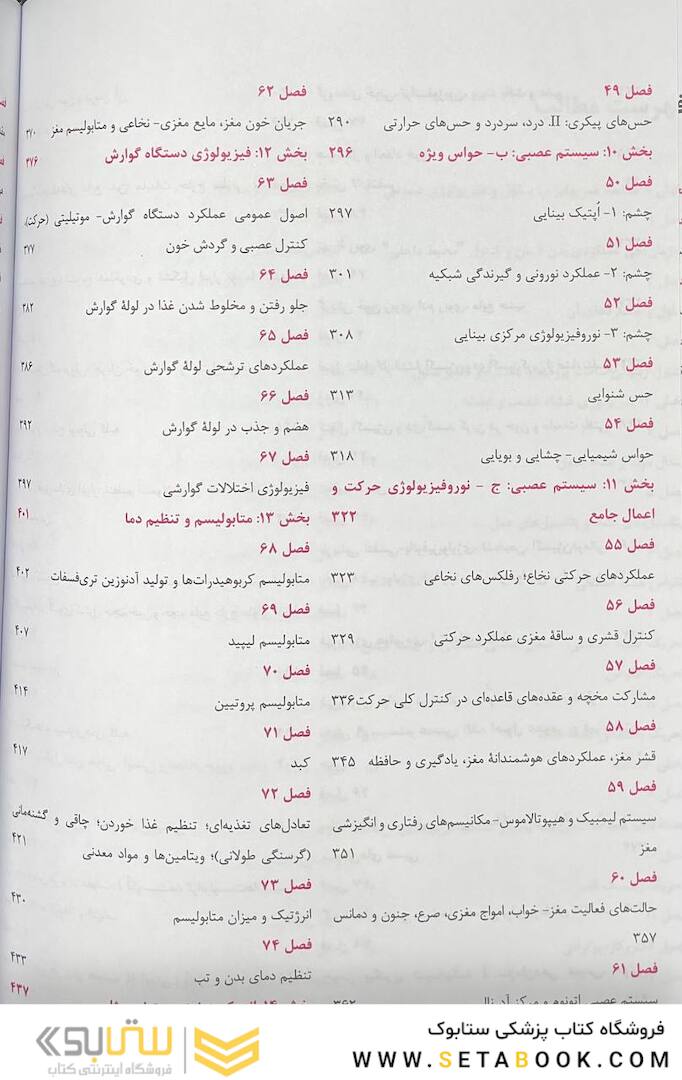 فصل ۴۹
حس‌های پیکری: II. درد، سردرد و حس‌های حرارتی ۲۹۰
بخش ۱۰: سیستم عصبی: ب- حواس ویژه ۲۹۶
فصل ۵۰
چشم: ۱- اُپتیک بینایی ۲۹۷
فصل ۵۱
چشم: ۲- عملکرد نورونی و گیرندگی شبکیه ۳۰۱
فصل ۵۲
چشم: ۳- نوروفیزیولوژی مرکزی بینایی ۳۰۸
فصل ۵۳
حس شنوایی ۳۱۳
فصل ۵۴
حواس شیمیایی- چشایی و بویایی ۳۱۸
بخش ۱۱: سیستم عصبی: ج - نوروفیزیولوژی حرکت و
اعمال جامع ۳۲۲
فصل ۵۵
عملکردهای حرکتی نخاع؛ رفلکس‌های نخاعی ۳۲۳
فصل ۵۶
کنترل قشری و ساقهٔ مغزی عملکرد حرکتی ۳۲۹
فصل ۵۷
مشارکت مخچه و عقده‌های قاعده‌ای در کنترل کلی حرکت ۳۳۶
فصل ۵۸
قشر مغز، عملکردهای هوشمندانهٔ مغز، یادگیری و حافظه ۳۴۵
فصل ۵۹
سیستم لیمبیک و هیپوتالاموس- مکانیسم‌های رفتاری و انگیزشی
مغز ۳۵۱
فصل ۶۰
حالت‌های فعالیت مغز- خواب، امواج مغزی، صرع، جنون و دمانس
۳۵۷
فصل ۶۱
سیستم عصبی اتونوم و مرکز آدرنال ۳۶۲
فصل ۶۲
جریان خون مغز، مایع مغزی- نخاعی و متابولیسم مغز ۳۷۰
بخش ۱۲: فیزیولوژی دستگاه گوارش ۳۷۶
فصل ۶۳
اصول عمومی عملکرد دستگاه گوارش- موتیلیتی (حرکت)،
کنترل عصبی و گردش خون ۳۷۷
فصل ۶۴
جلو رفتن و مخلوط شدن غذا در لولهٔ گوارش ۳۸۲
فصل ۶۵
عملکردهای ترشحی لولهٔ گوارش ۳۸۶
فصل ۶۶
هضم و جذب در لولهٔ گوارش ۳۹۲
فصل ۶۷
فیزیولوژی اختلالات گوارشی ۳۹۷
بخش ۱۳: متابولیسم و تنظیم دما ۴۰۱
فصل ۶۸
متابولیسم کربوهیدرات‌ها و تولید آدنوزین تری‌فسفات ۴۰۲
فصل ۶۹
متابولیسم لیپید ۴۰۷
فصل ۷۰
متابولیسم پروتیین ۴۱۴
فصل ۷۱
کبد ۴۱۷
فصل ۷۲
تعادل‌های تغذیه‌ای؛ تنظیم غذا خوردن؛ چاقی و گشنه‌مانی
(گرسنگی طولانی)؛ ویتامین‌ها و مواد معدنی ۴۲۱
فصل ۷۳
انرژتیک و میزان متابولیسم ۴۳۰
فصل ۷۴
تنظیم دمای بدن و تب ۴۳۳
۴۳۷
فروشگاه کتاب پزشکی ستابوک
WWW.SETABOOK.COM
ستابوک
فروشگاه اینترنتی کتاب